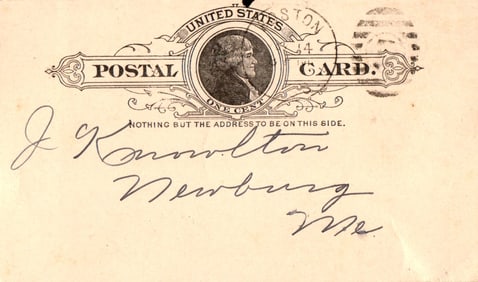 UNITED STATES
STON
14
POSTAL CARD.
ONE CENT
NOTHING BUT THE ADDRESS TO BE ON THIS SIDE.
J Knowlton
Newburg
Me.